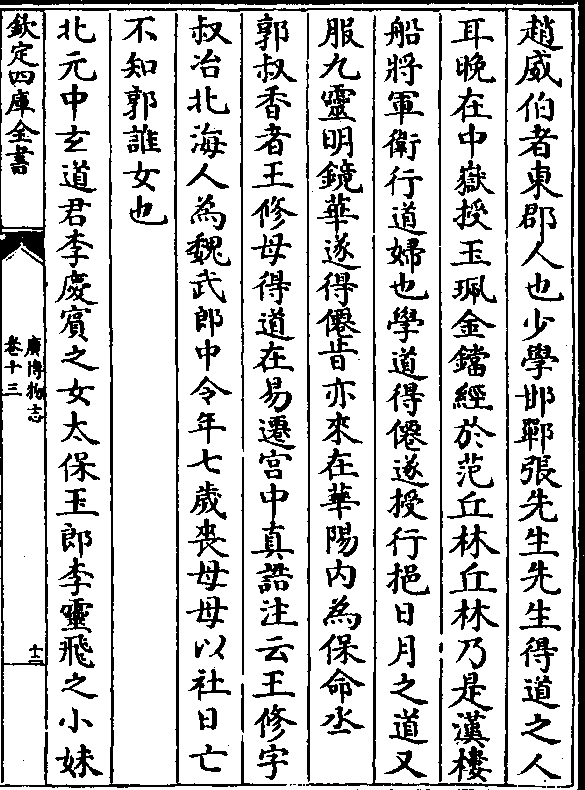 趙威伯者東郡人也少學邯鄲張先生先生得道之人
耳晚在中嶽授玉珮金鐺經於范丘林丘林乃是漢樓
船將軍衛行道婦也學道得僊遂授行挹日月之道又
服九靈明鏡華遂得僊昔亦來在華陽内為保命丞
郭叔香者王修母得道在易遷宫中真誥注云王修字
叔治北海人為魏武郎中令年七歲喪母母以社日亡
不知郭誰女也
北元中玄道君李慶賓之女太保玉郎李靈飛之小妹
欽定四庫全書
廣博物志
卷十三
十二